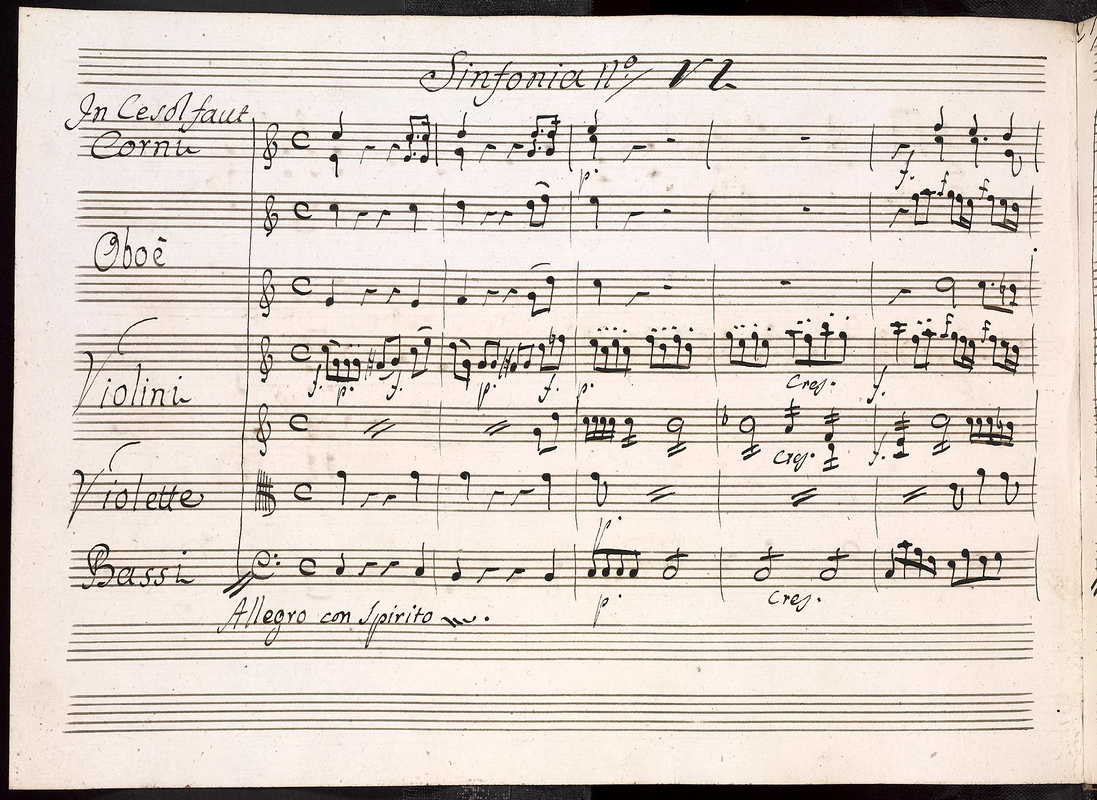 Sinfonia N.º VI.
In Cesolfaut
Cornu
p.
f.
Oboē
f f
Violini
f. p. f. p. f. p. Cres. f. f f
Cres. f.
Violette
p.
Bassi
p. Cres.
Allegro con Spirito